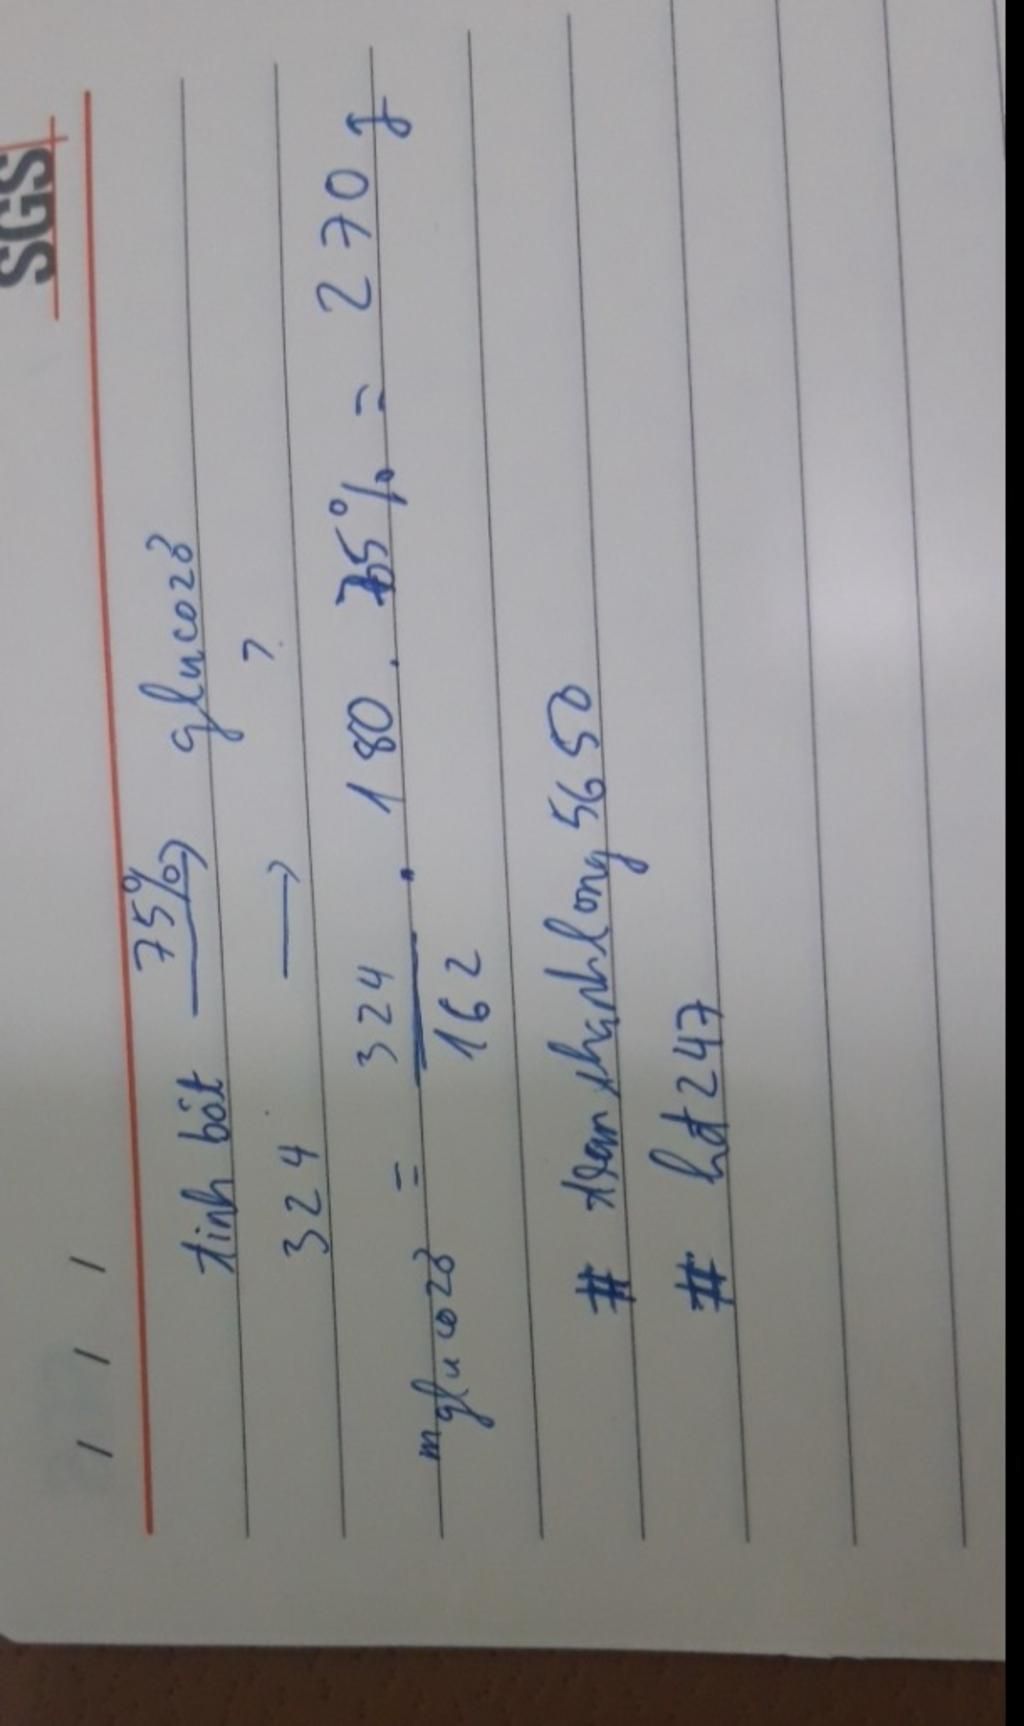 SGS
/ / /
tinh bột 75% → glucozơ
324 → ?
m glucozơ = 324/162 . 180 . 75% = 270 g
# tranthanhlong5650
# hd247